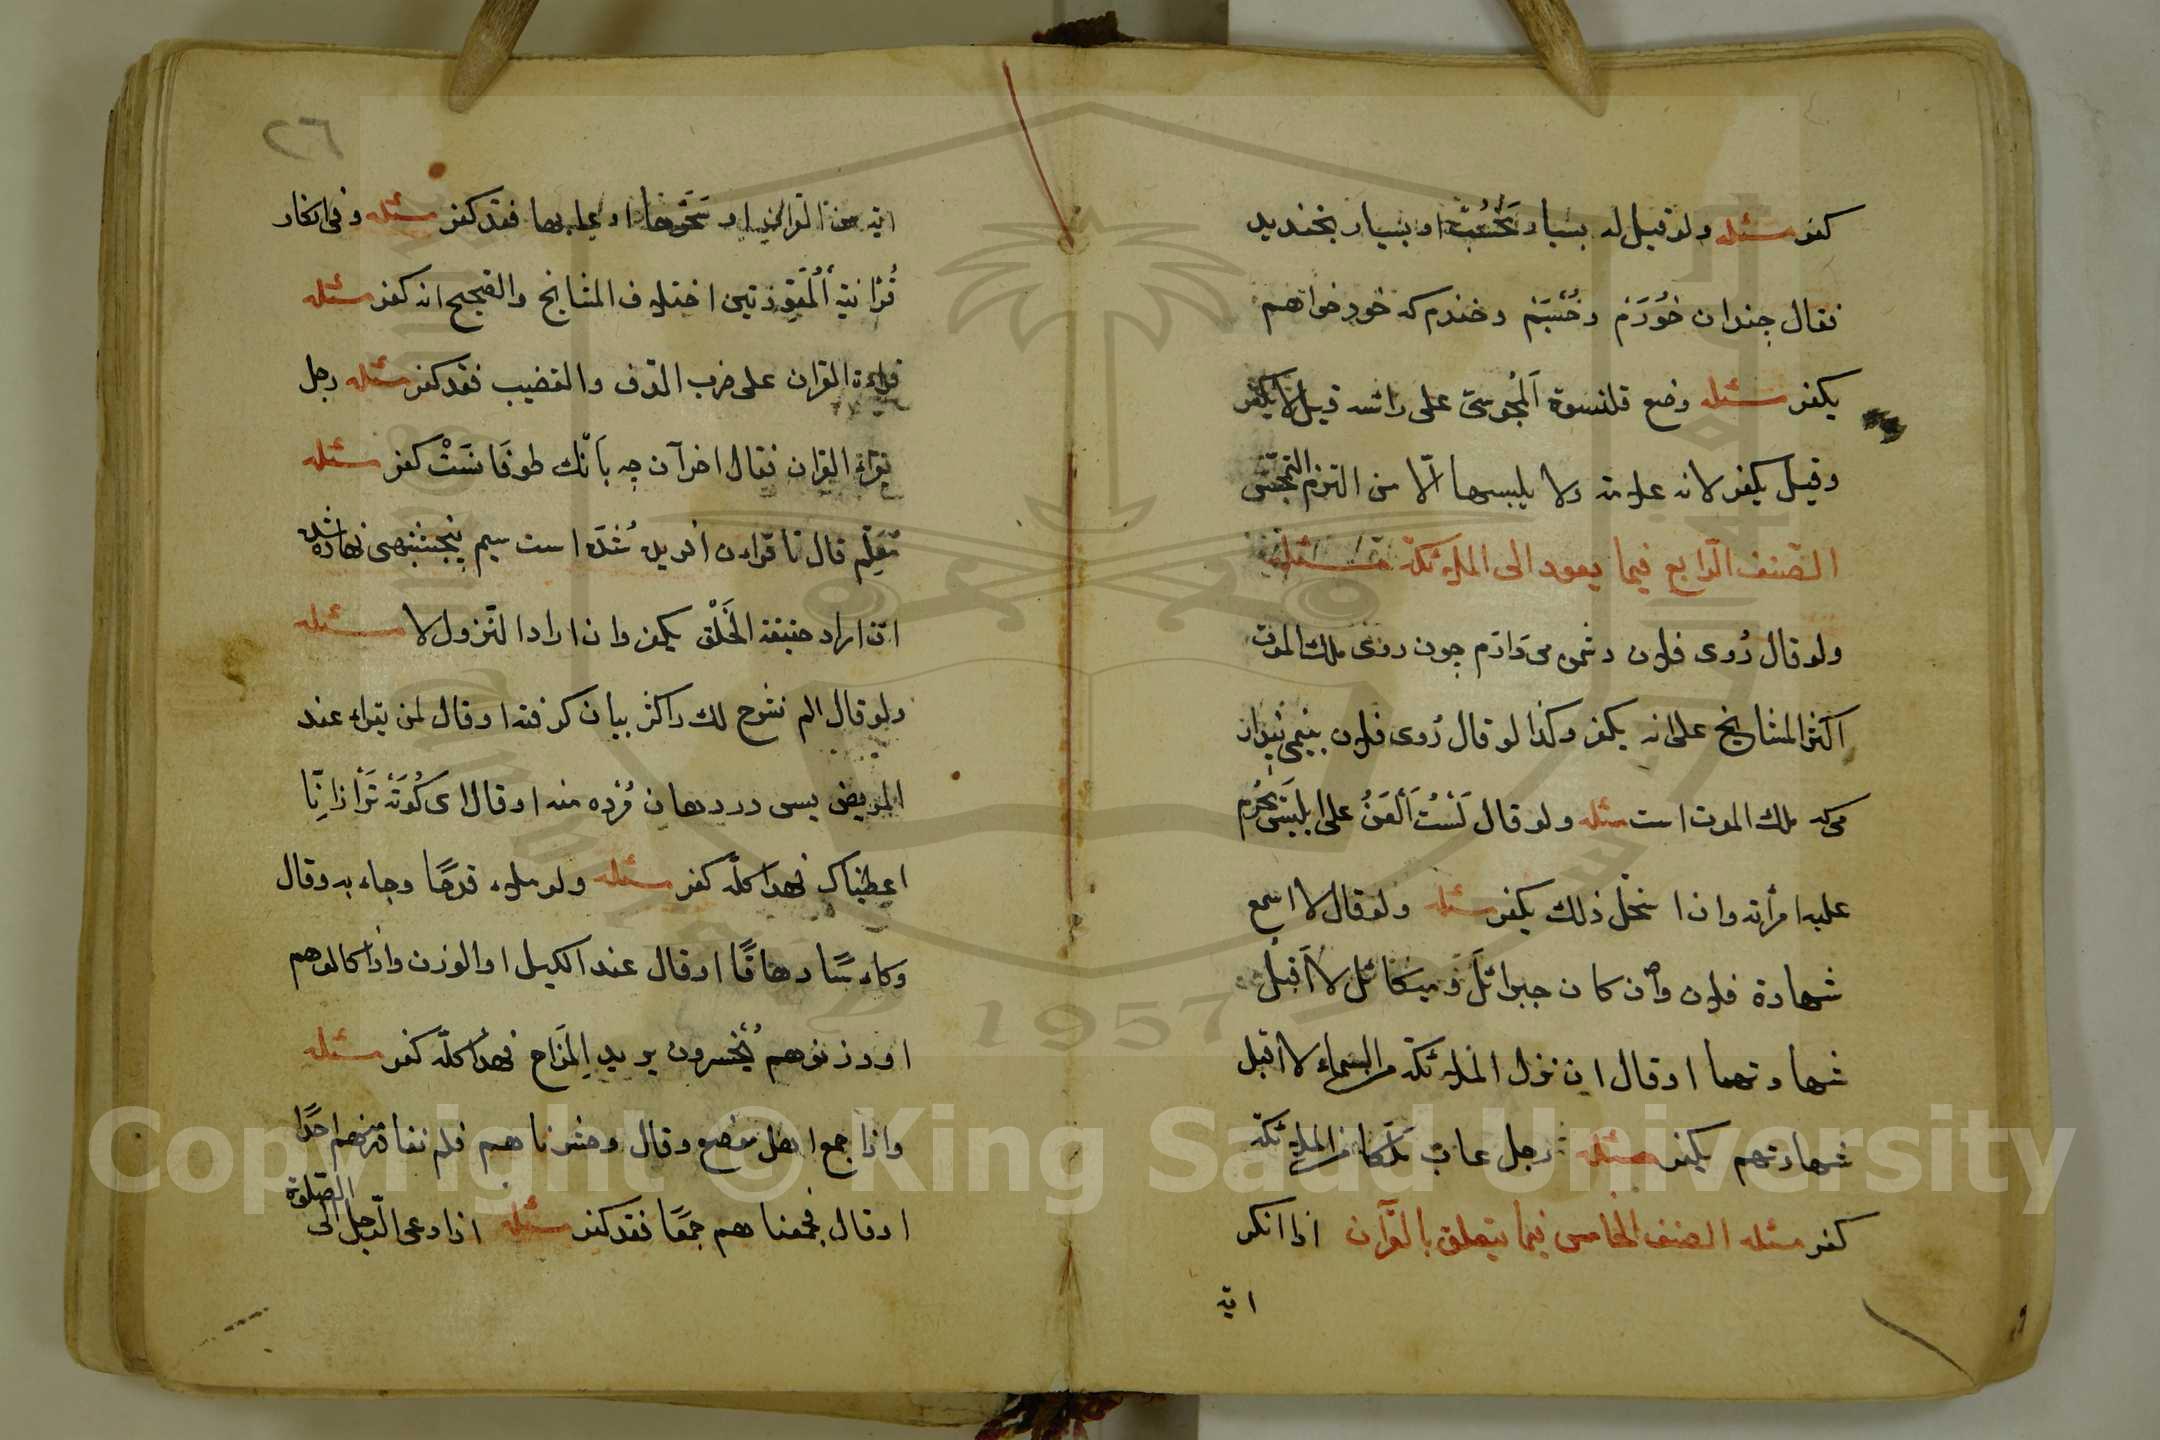 كفر مسئله ولو قيل له بسيار مخسب او بسيار بخنديد
فقال جندان خورم وخسبم وخندم كه خود خواهم
يكفر مسئله وضع قلنسوة المجوسى على رائسه قيل لا يكفر
وقيل يكفر لانه علامة ولا يلبسها الّا من التزم التمجس
الصّنف الرّابع فيما يعود الى الملائكة مسئله
ولو قال رُوى فلان دشمن مى دارم جون روى ملك الموت
اكثر المشايخ على انه يكفر وكذا لو قال رُوى فلان
كه ملك الموت است مسئله ولو قال لَسْتُ اَلْعَنُ على ابليس
عليه امرأته وان استحل ذلك يكفر مسئله ولو قال لا اسمع
شهادة فلان وان كان جبرائل وميكائل لا اقبل
شهادتهما او قال ان نزل الملائكة من السماء لا اقبل
شهادتهم يكفر مسئله رجل عاب ملكا من الملائكة
كفر مسئله الصنف الخامس فيما يتعلق بالقرآن اذا انكر
اية
٢٦
اية من القران او سخر بها او عابها فقد كفر مسئله وفى انكار
قُرْانية اَلْمُعَوّذتين اختلاف المشايخ والصّحيح انه كفر مسئله
قراءة القران على ضرب الدّف والقضيب فقد كفر مسئله رجل
يقراء القران فقال اخر آن چه بانك طوفانست كفر مسئله
معلّم قال تا قراءن افريده شده است سيم پنجشنبهى نهاده شده
ان اراد حقيقة الخَلْق يكفر وان اراد النّزول لا مسئله
ولو قال الم نشرح لك را كريبان كرفته او قال لمن يقراء عند
المريض يسى در دهان مُرْده منه او قال اى كُوتَه تَرْ از انّا
اعطيناك فهذا كله كفر مسئله ولو ملاء قدحًا وجاء به وقال
وكاءسًا دهاقًا او قال عند الكيل او الوزن واذا كالوهم
او وزنوهم يُخسرون يريد المزَاح فهذا كلّه كفر مسئله
واذا جمع اهل موضع وقال وحشرناهم فلم نغادر منهم احدًا
او قال فجمعناهم جمعًا فقد كفر مسئله اذا دعى الرّجل الى الصّلوة
Copyright © King Saud University
1957